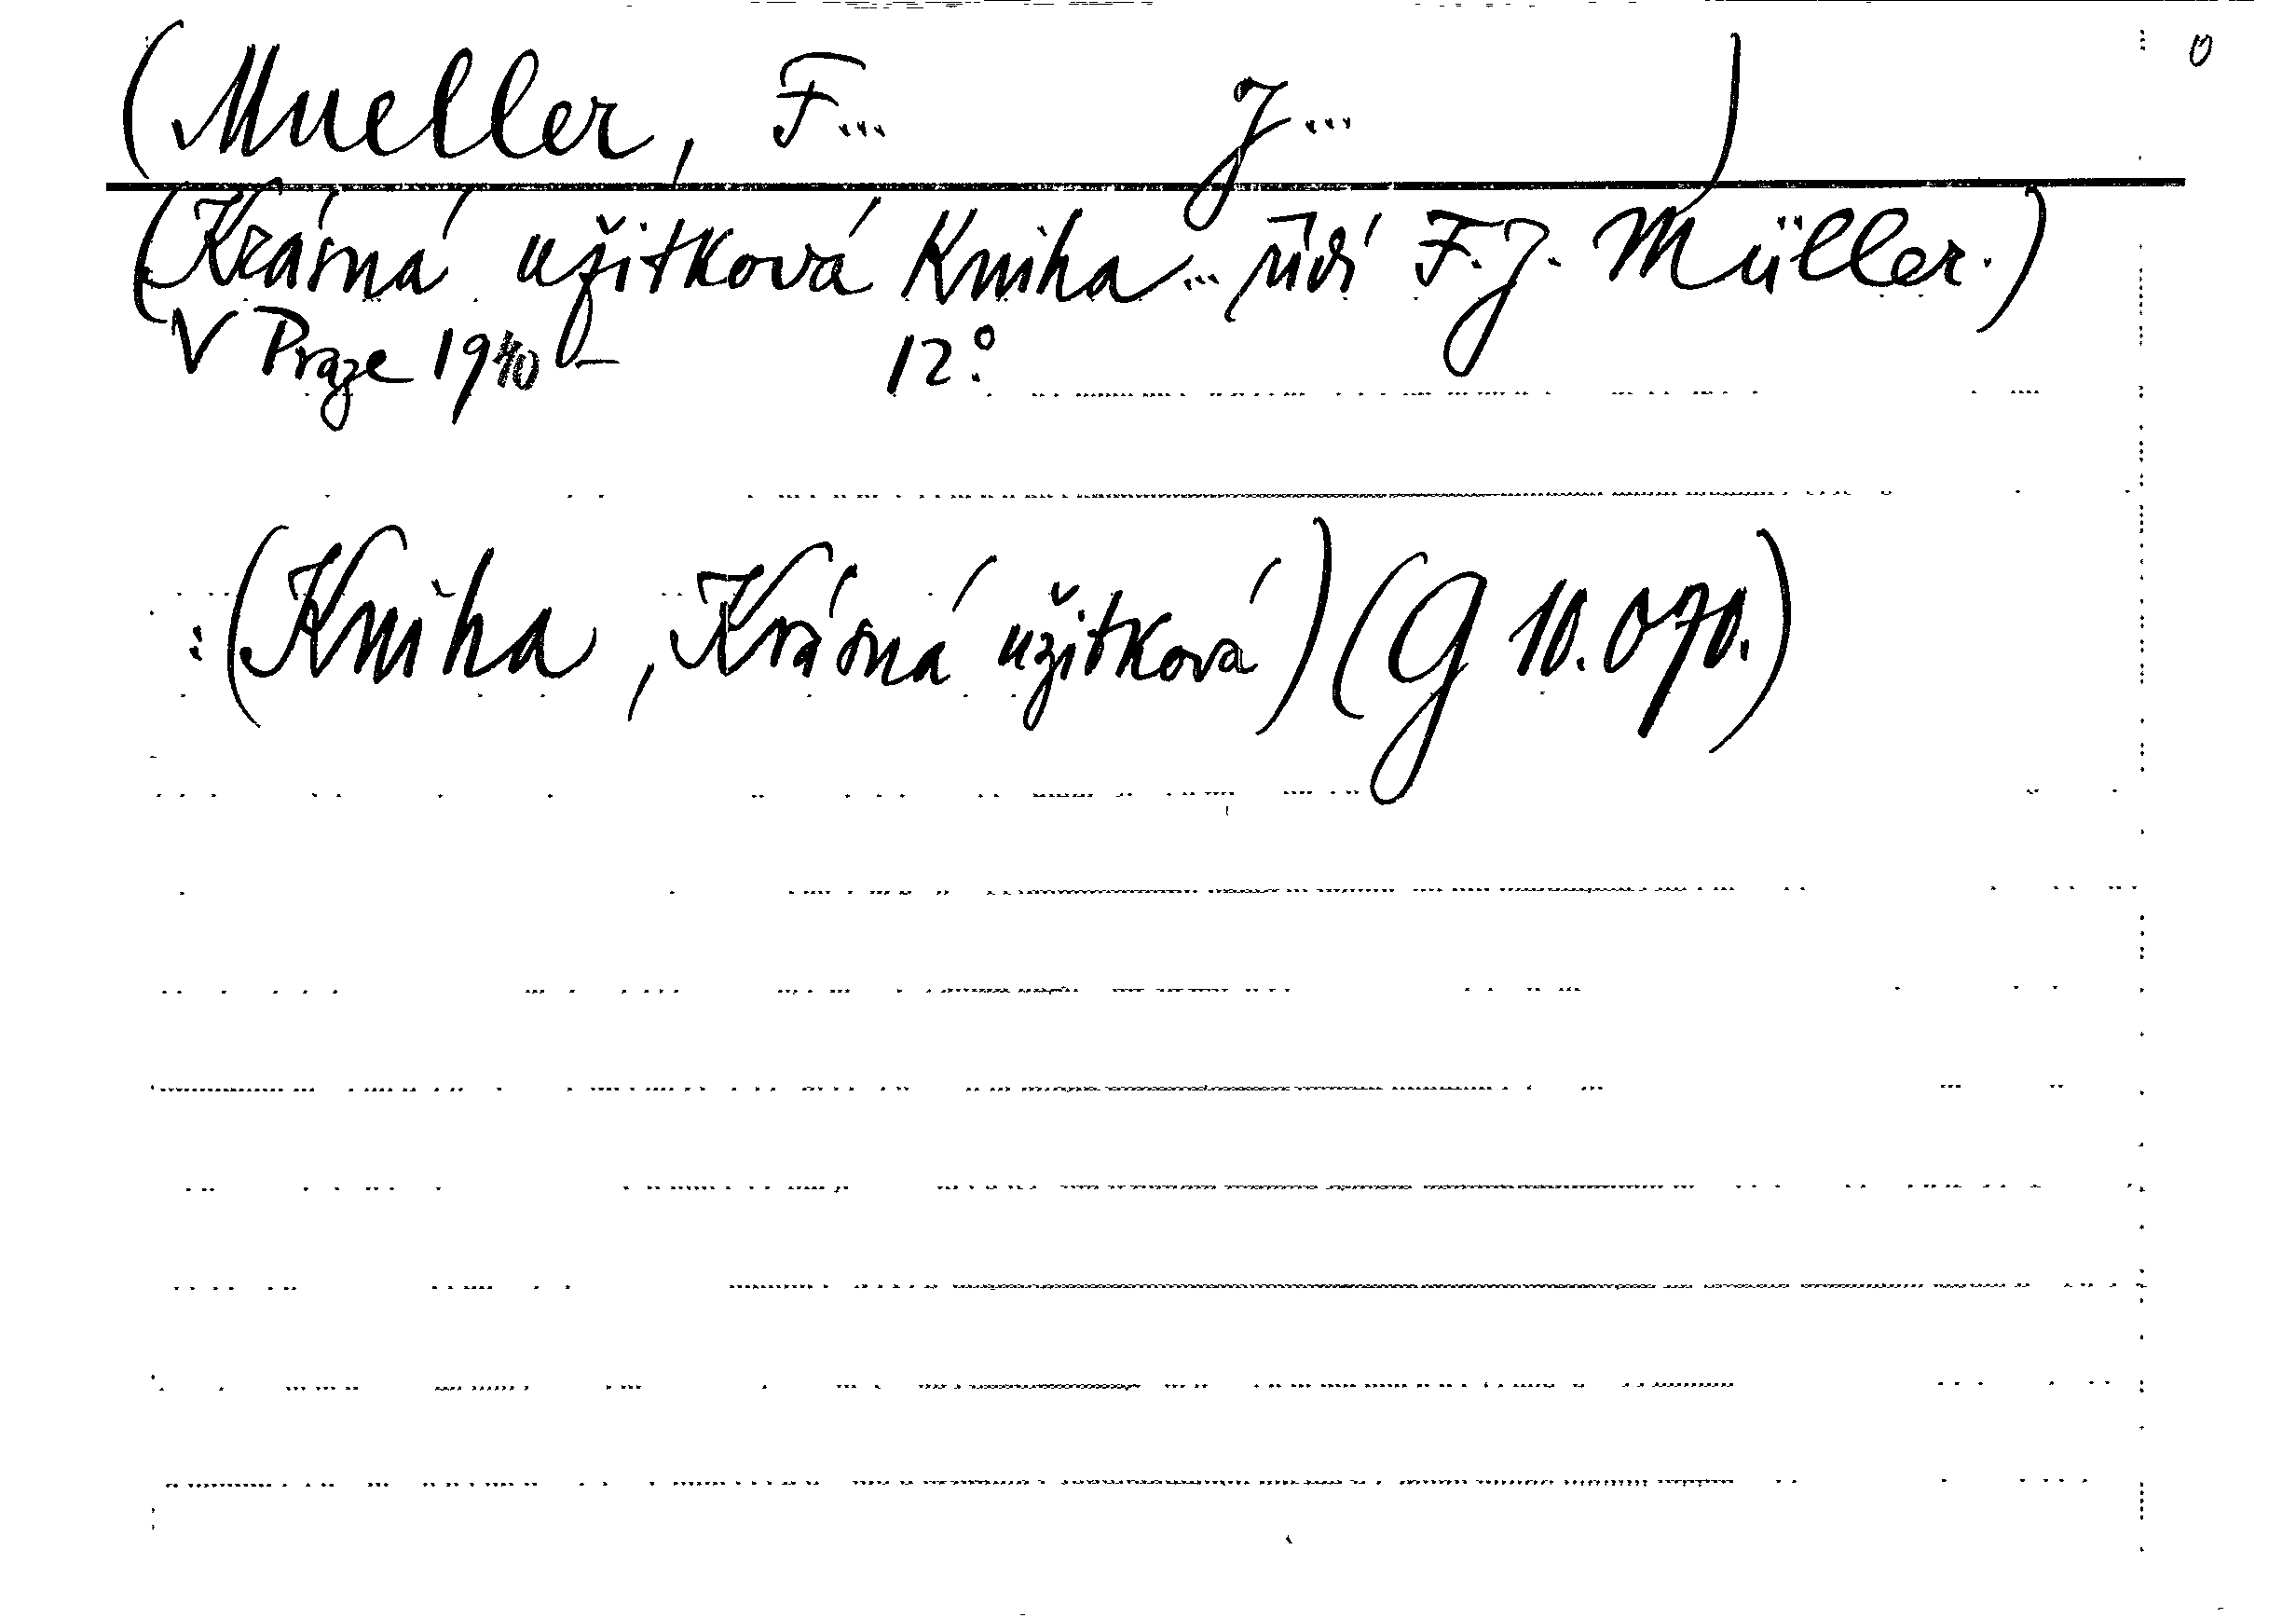 (Mueller, F... J...)
(Krásná užitková Kniha... řídí F. J. Müller.)
V Praze 1940 – 12°.
: (Kniha, Krásná užitková) (G 10.070.)